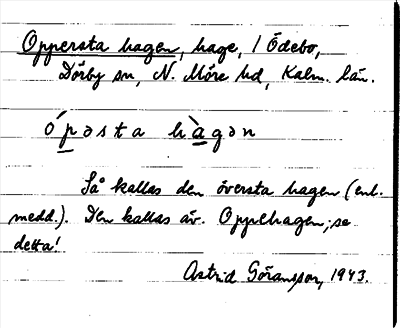 Oppersta hagen, hage, 1 Ödebo,
Dörby sn, N. Möre hd, Kalm. län.
ópəsta hàgən
Så kallas den översta hagen (enl.
medd.). Den kallas äv. Oppehagen; se
detta!
Astrid Göransson, 1943.